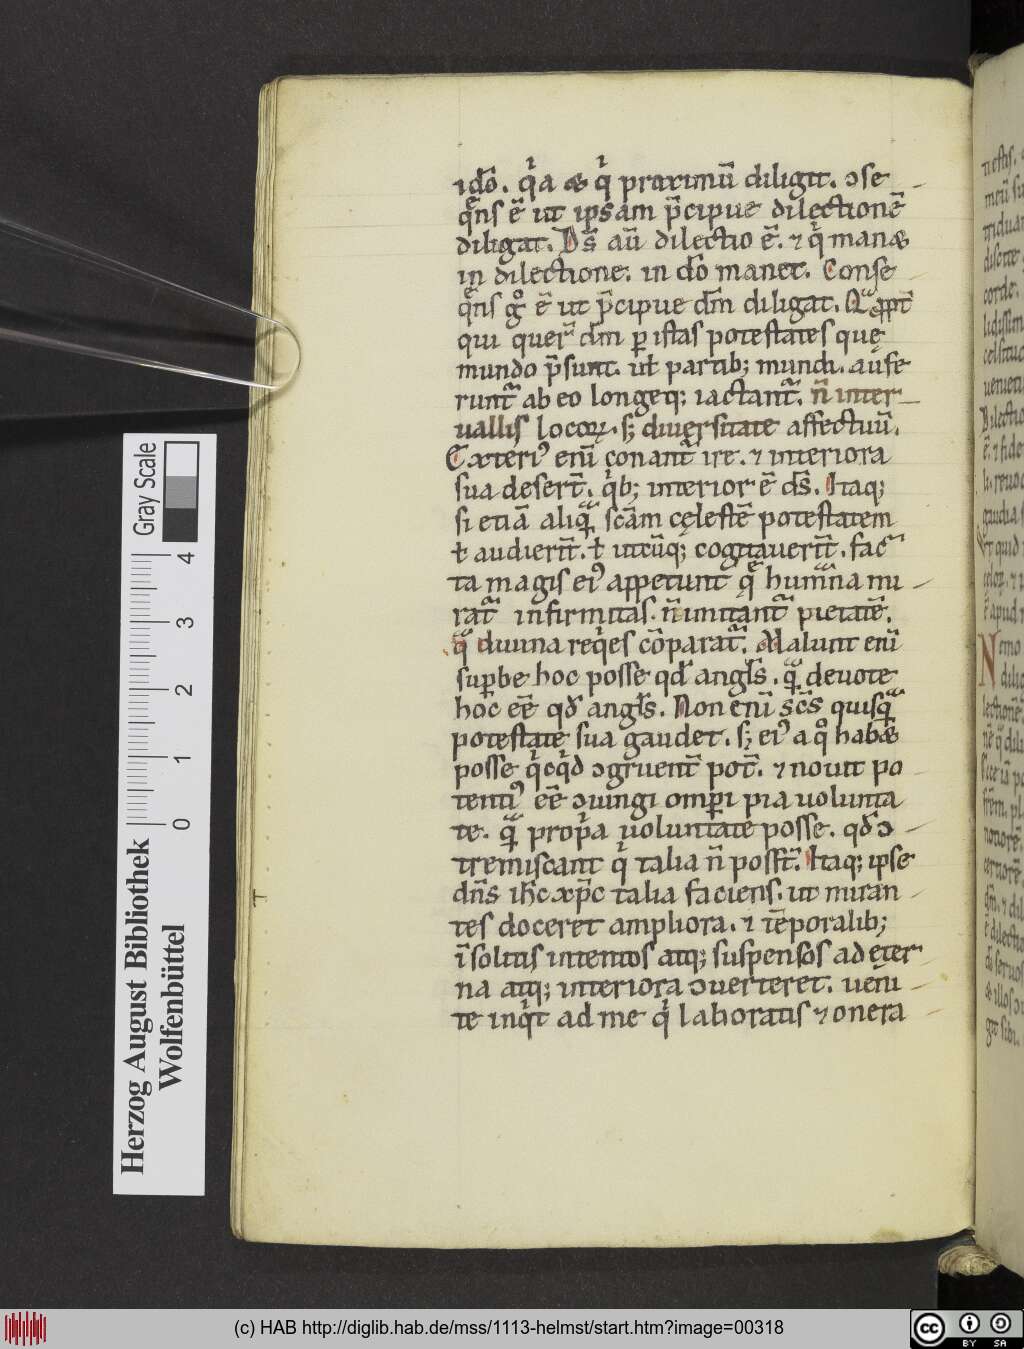 idō. qͥa & qͥ proximū diligit. ɔse
qͤns ē ut ipsam p̄cipue dilectionē
diligat. Ds̄ aū dilectio ē. ⁊ qͥ man&
in dilectione. in dō manet. Conse
qͤns gͦ ē ut p̄cipue dm̄ diligat. Qᵃꝓpt̄
qui querͫ dm̄ ꝑ istas potestates quę
mundo p̄sunt. ut partib; mundi. aufe
runtᷓ ab eo longeq; iactantᷓ. n̄ inter
uallis locoꝝ. s; diuersitate affectuū.
Exteriꝰ enī conantᷓ ire. ⁊ interiora
sua desert̄. qͥb; interior ē ds̄. Itaq;
si etiā aliqᷓ scām cęlestē potestatem
ł audierīt. ł utcūq; cogitauerīt. fac
ta magis eiꝰ appetunt qͤ humᷓna mi
ratᷓ infirmitas. n̄ imitantᷓ pietatē.
qᷓ diuina reqͥes cōparatᷓ. Malunt enī
supbe hoc posse qđ angłs. qᷓ deuote
hoc eē qđ angłs. Non enī sc̄s quisqᷓ
potestate sua gaudet. s; eiꝰ a qͦ hab&
posse qͥcqͥd ɔgruent̄ pot̄. ⁊ nouit po
tentiꝰ eē ɔiungi omp̄i pia uolunta
te. qᷓ prop̄a uoluntate posse. qđ ɔ
tremiscant qͥ talia n̄ possт̄. Itaq; ipse
dn̄s ih̄c xp̄c talia faciens. ut miran
tes doceret ampliora. ⁊ tēporalib;
īsolitis intentos atq; suspensos ad eter
na atq; interiora ɔuerteret. ueni
te inqͥt ad me qͥ laboratis ⁊ onera
Gray Scale
0 1 2 3 4
Herzog August Bibliothek
Wolfenbüttel
(c) HAB http://diglib.hab.de/mss/1113-helmst/start.htm?image=00318
cc BY SA